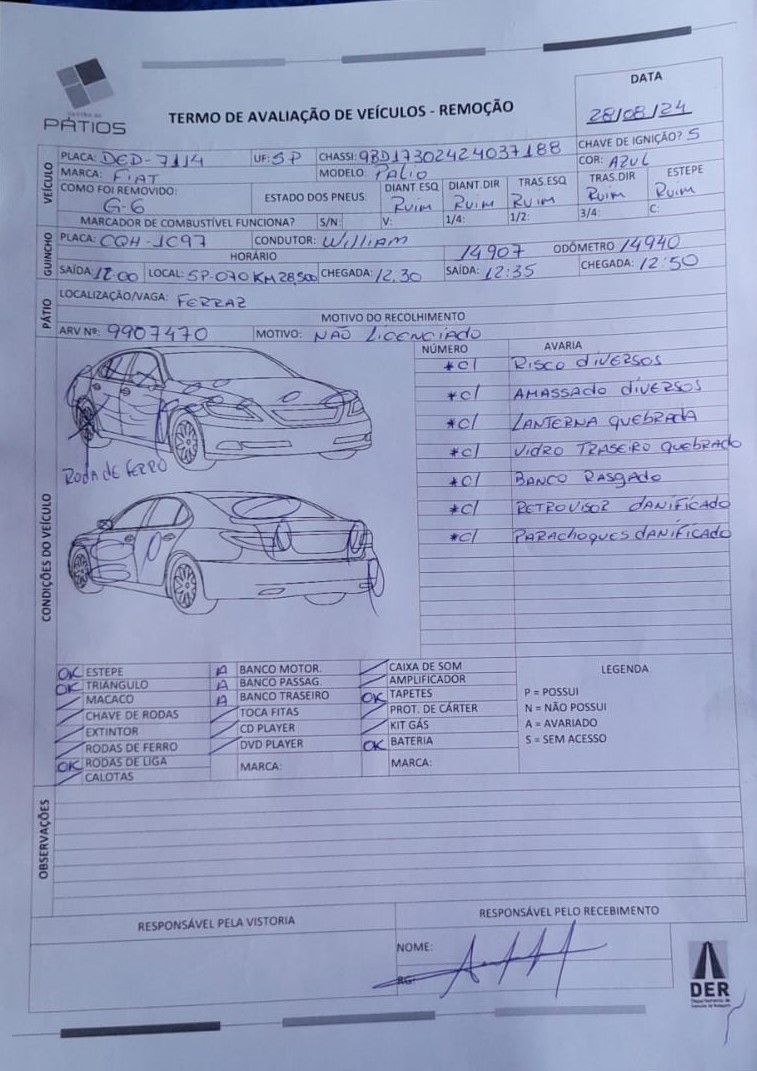 PÁTIOS
TERMO DE AVALIAÇÃO DE VEÍCULOS - REMOÇÃO
DATA
28/08/24
VEÍCULO
PLACA: DED-7114 UF: SP CHASSI: 9BD17302424037188 CHAVE DE IGNIÇÃO? S
MARCA: FIAT MODELO: PALIO COR: AZUL
COMO FOI REMOVIDO: G-6 ESTADO DOS PNEUS: DIANT.ESQ RUIM DIANT.DIR RUIM TRAS.ESQ RUIM TRAS.DIR RUIM ESTEPE RUIM
MARCADOR DE COMBUSTÍVEL FUNCIONA? S/N: V: 1/4: 1/2: 3/4: C:
GUINCHO
PLACA: CQH-1C97 CONDUTOR: WILLIAM 14907 ODÔMETRO 14940
HORÁRIO
SAÍDA: 12:00 LOCAL: SP-070 KM 28,500 CHEGADA: 12.30 SAÍDA: 12:35 CHEGADA: 12:50
PÁTIO
LOCALIZAÇÃO/VAGA: FERRAZ
MOTIVO DO RECOLHIMENTO
ARV Nº: 9907470 MOTIVO: NÃO LICENCIADO
CONDIÇÕES DO VEÍCULO
NÚMERO AVARIA
*c/ RISCO DIVERSOS
*c/ AMASSADO DIVERSOS
*c/ LANTERNA QUEBRADA
*c/ VIDRO TRASEIRO QUEBRADO
*c/ BANCO RASGADO
*c/ RETROVISOR DANIFICADO
*c/ PARACHOQUES DANIFICADO
RODA DE FERRO
OK ESTEPE A BANCO MOTOR. CAIXA DE SOM LEGENDA
OK TRIÂNGULO A BANCO PASSAG. AMPLIFICADOR
MACACO A BANCO TRASEIRO OK TAPETES P = POSSUI
CHAVE DE RODAS TOCA FITAS PROT. DE CÁRTER N = NÃO POSSUI
EXTINTOR CD PLAYER KIT GÁS A = AVARIADO
RODAS DE FERRO DVD PLAYER OK BATERIA S = SEM ACESSO
OK RODAS DE LIGA MARCA: MARCA:
CALOTAS
OBSERVAÇÕES
RESPONSÁVEL PELA VISTORIA RESPONSÁVEL PELO RECEBIMENTO
NOME:
RG:
DER